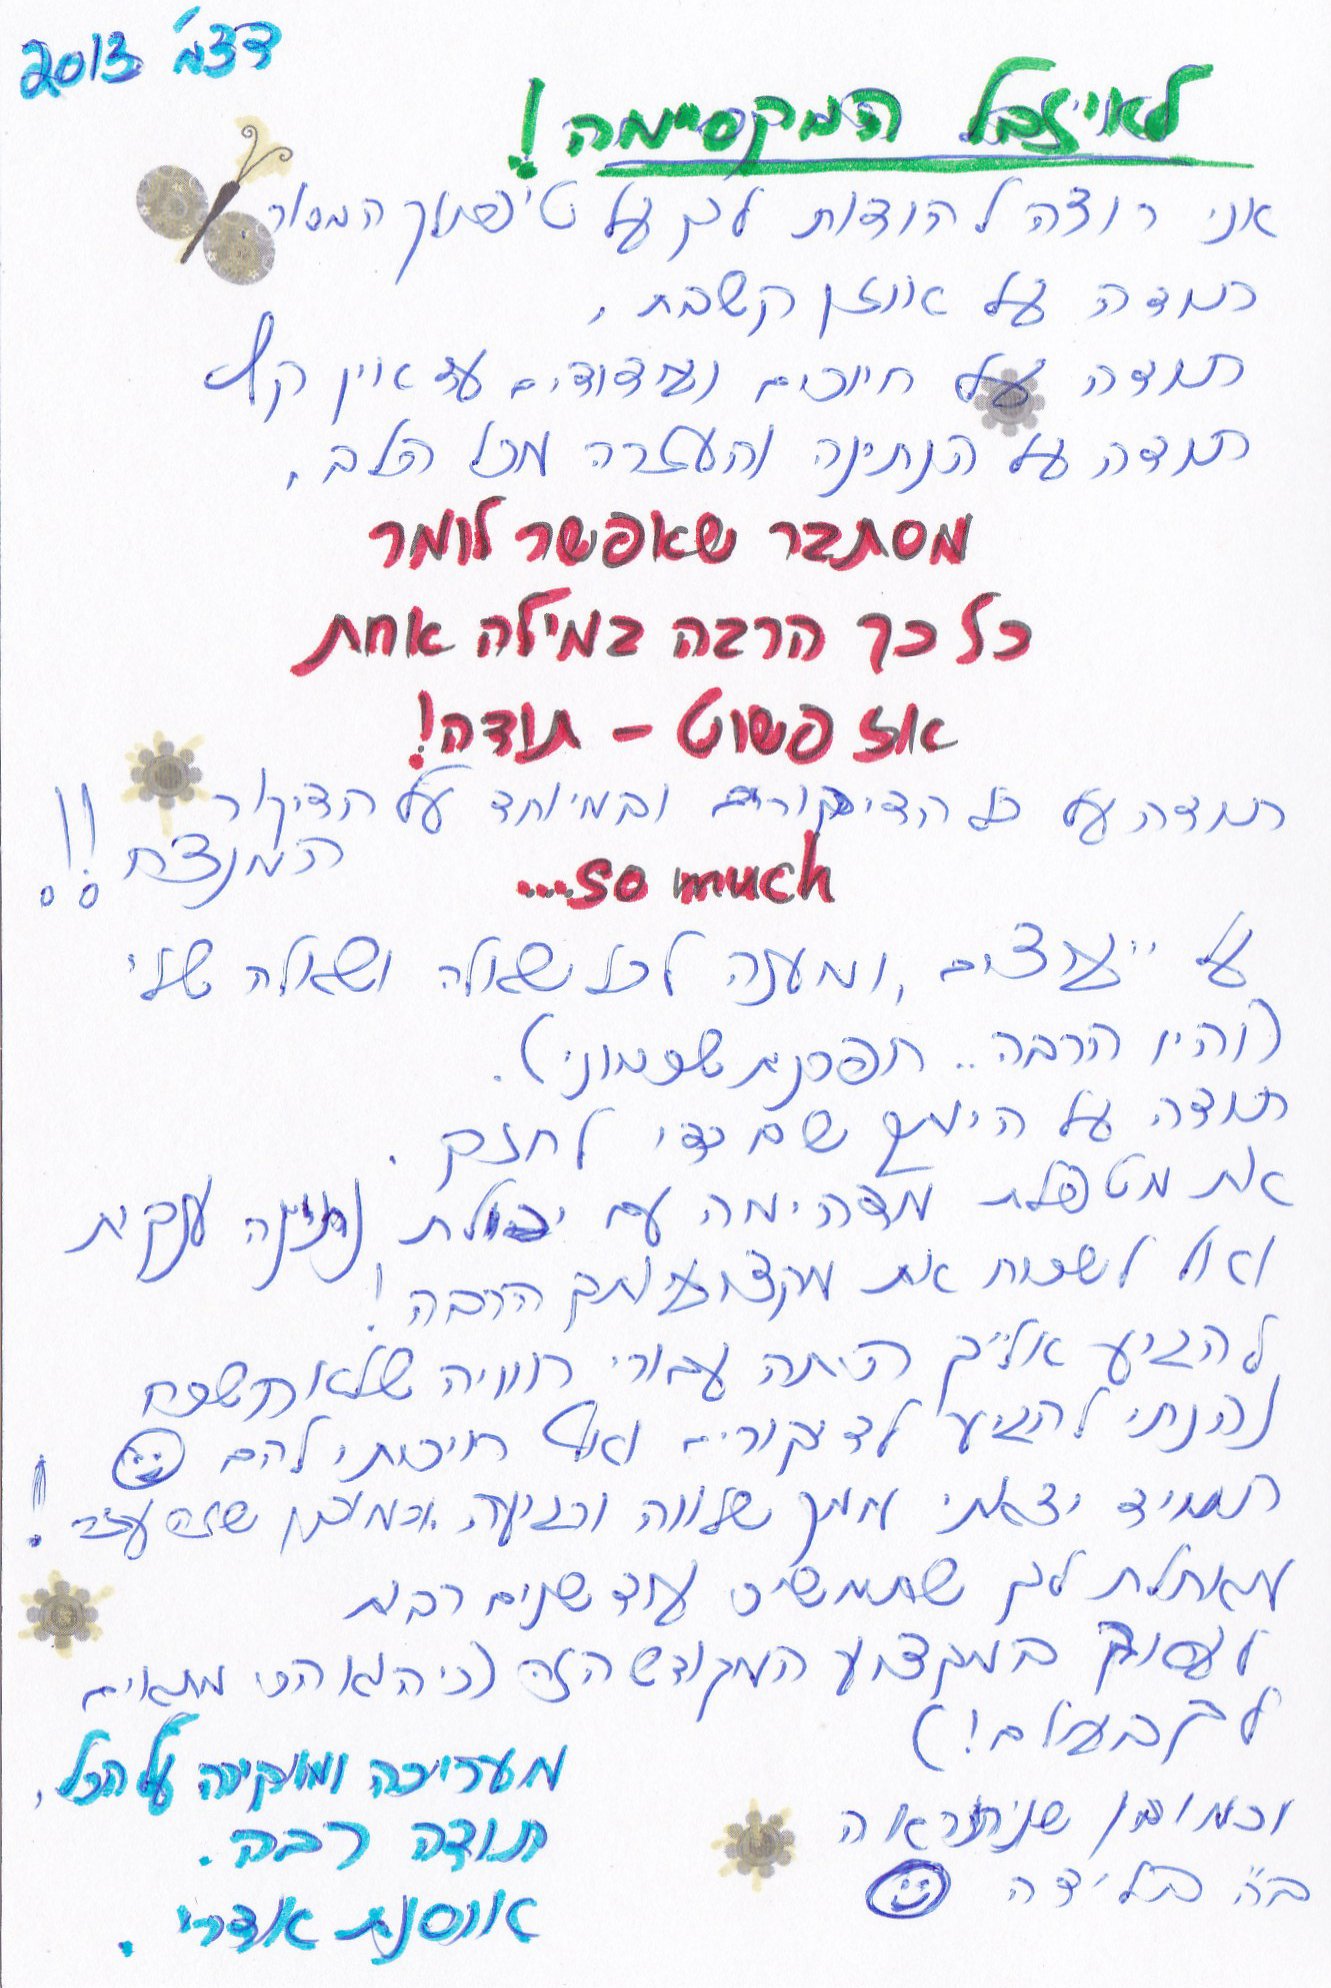 דצמ' 2013
לאייזבל המקסימה!
אני רוצה להודות לך על טיפולך המסור
תודה על אוזן קשבת,
תודה על חיוכים ועידודים עד אין קץ
תודה על הנתינה והעזרה מכל הלב,
מסתבר שאפשר לומר
כל כך הרבה במילה אחת
אז פשוט – תודה!
תודה על כל הדיקורים ובמיוחד על הדיקור
המנצח!!
so much...
על ייעוצים, ומענה לכל שאלה ושאלה שלי
(והיו הרבה.. חפרנית שכמוני).
תודה על היחס שם כדי לחזק.
את מטפלת מדהימה עם יכולת נתינה ענקית
ואל לשכוח את מקצועיותך הרבה!
להגיע אלייך היתה עבורי חוויה שלא תשכח
נהנתי להגיע לדיקורים ואף חיכיתי להם
תמיד יצאתי ממך שלווה ורגיעה וכמובן שזה עזר!
מאחלת לך שתמשיכי עוד שנים רבות
לעסוק במקצוע המקודש הזה (כי הוא הכי מתאים
לך בעולם!)
וכמובן שנתראה
בה בלידה
מעריכה ומוקירה על הכל,
תודה רבה.
אוסנת אדרי.